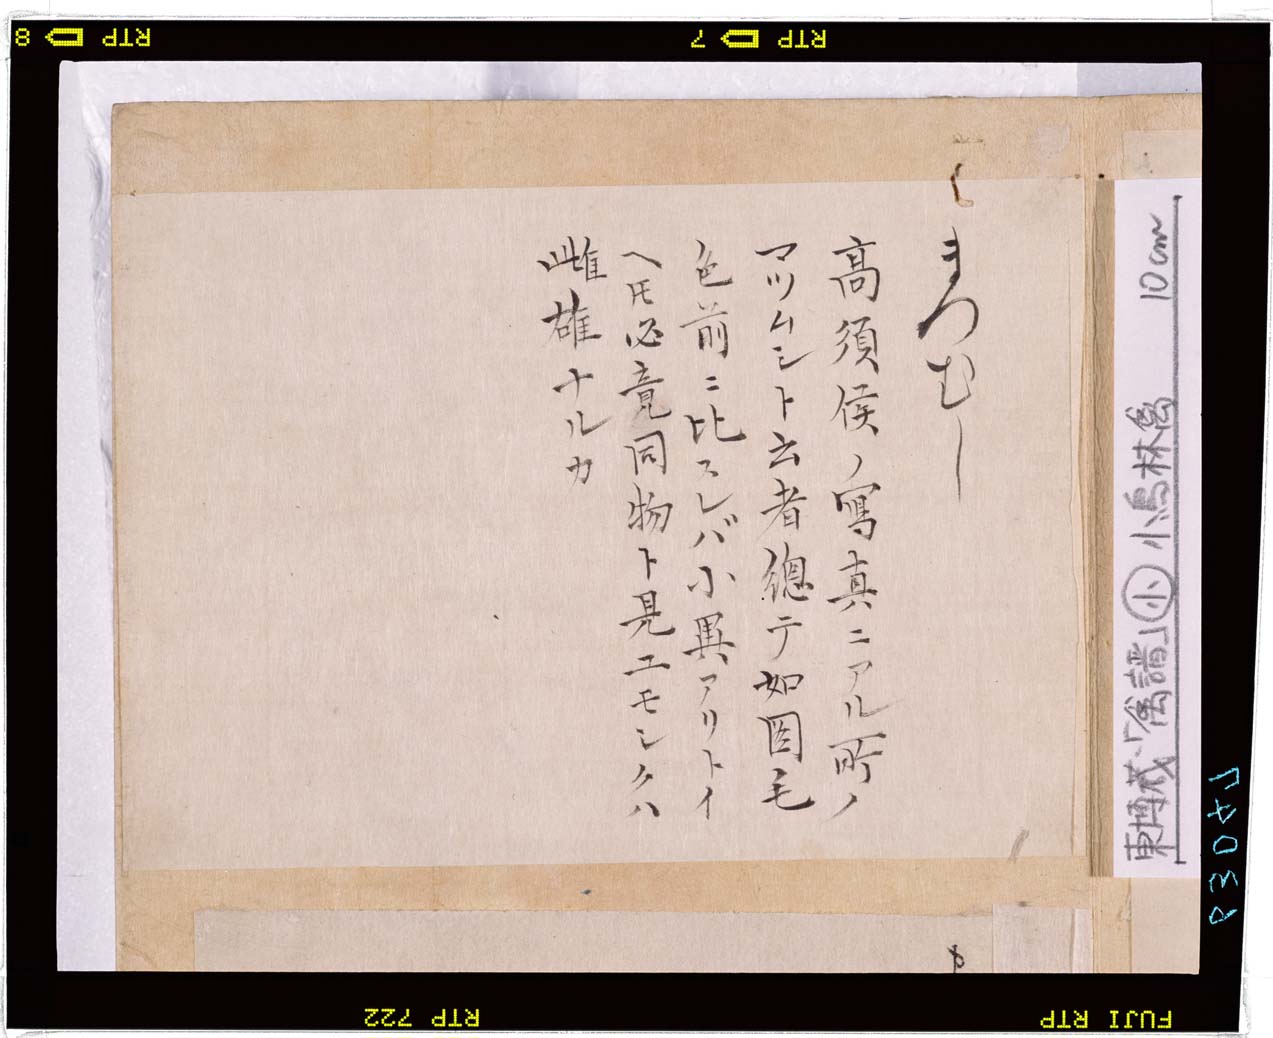 まつむし
高須侯ノ寫真ニアル所ノ
マツムシト云者總テ如圖毛
色前ニ比スレバ小異アリトイ
ヘ𪜈必竟同物ト見エモシクハ
雌雄ナルカ
東博蔵「禽譜」小 小鳥林禽 10cm
8 RTP
7 RTP
RTP 722
FUJI RTP